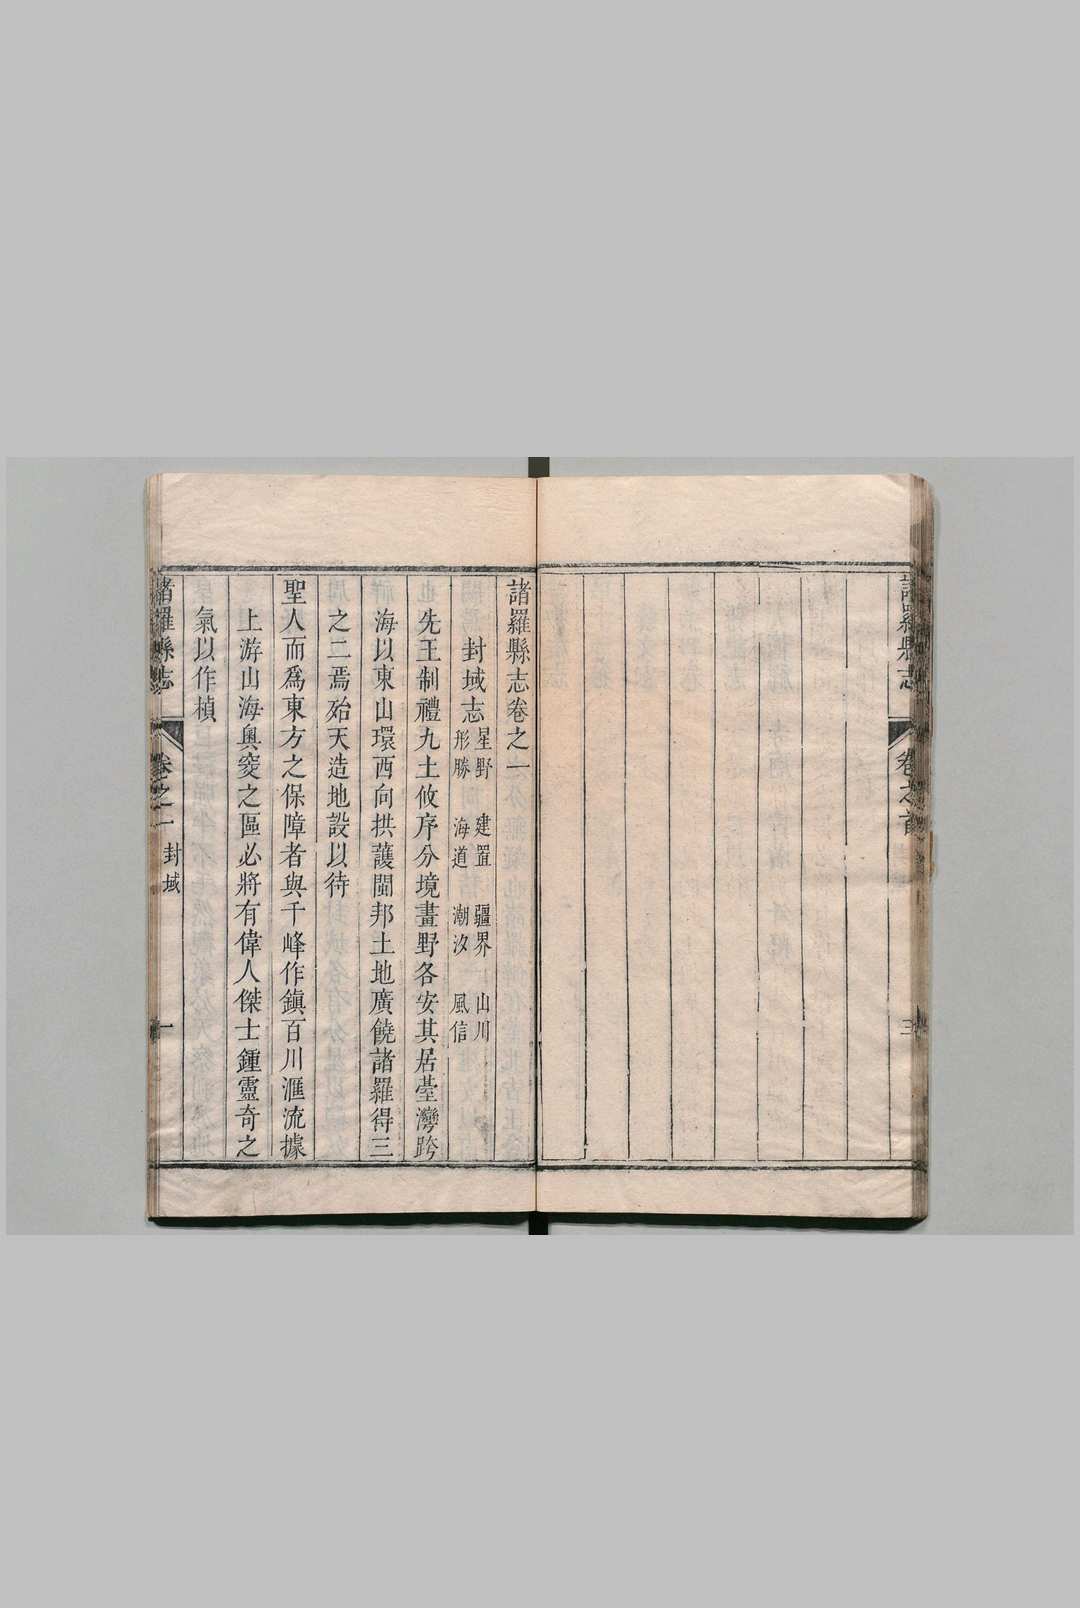 諸羅縣志
卷之首
三
諸羅縣志卷之一
封域志 星野 建置 疆界 山川
形勝 海道 潮汐 風信
先王制禮九土攸序分境畫野各安其居臺灣跨
海以東山環西向拱護閩邦土地廣饒諸羅得三
之二焉殆天造地設以待
聖人而為東方之保障者與千峰作鎮百川滙流據
上游山海奧窔之區必將有偉人傑士鍾靈奇之
氣以作楨
諸羅縣志
卷之一
封域
一